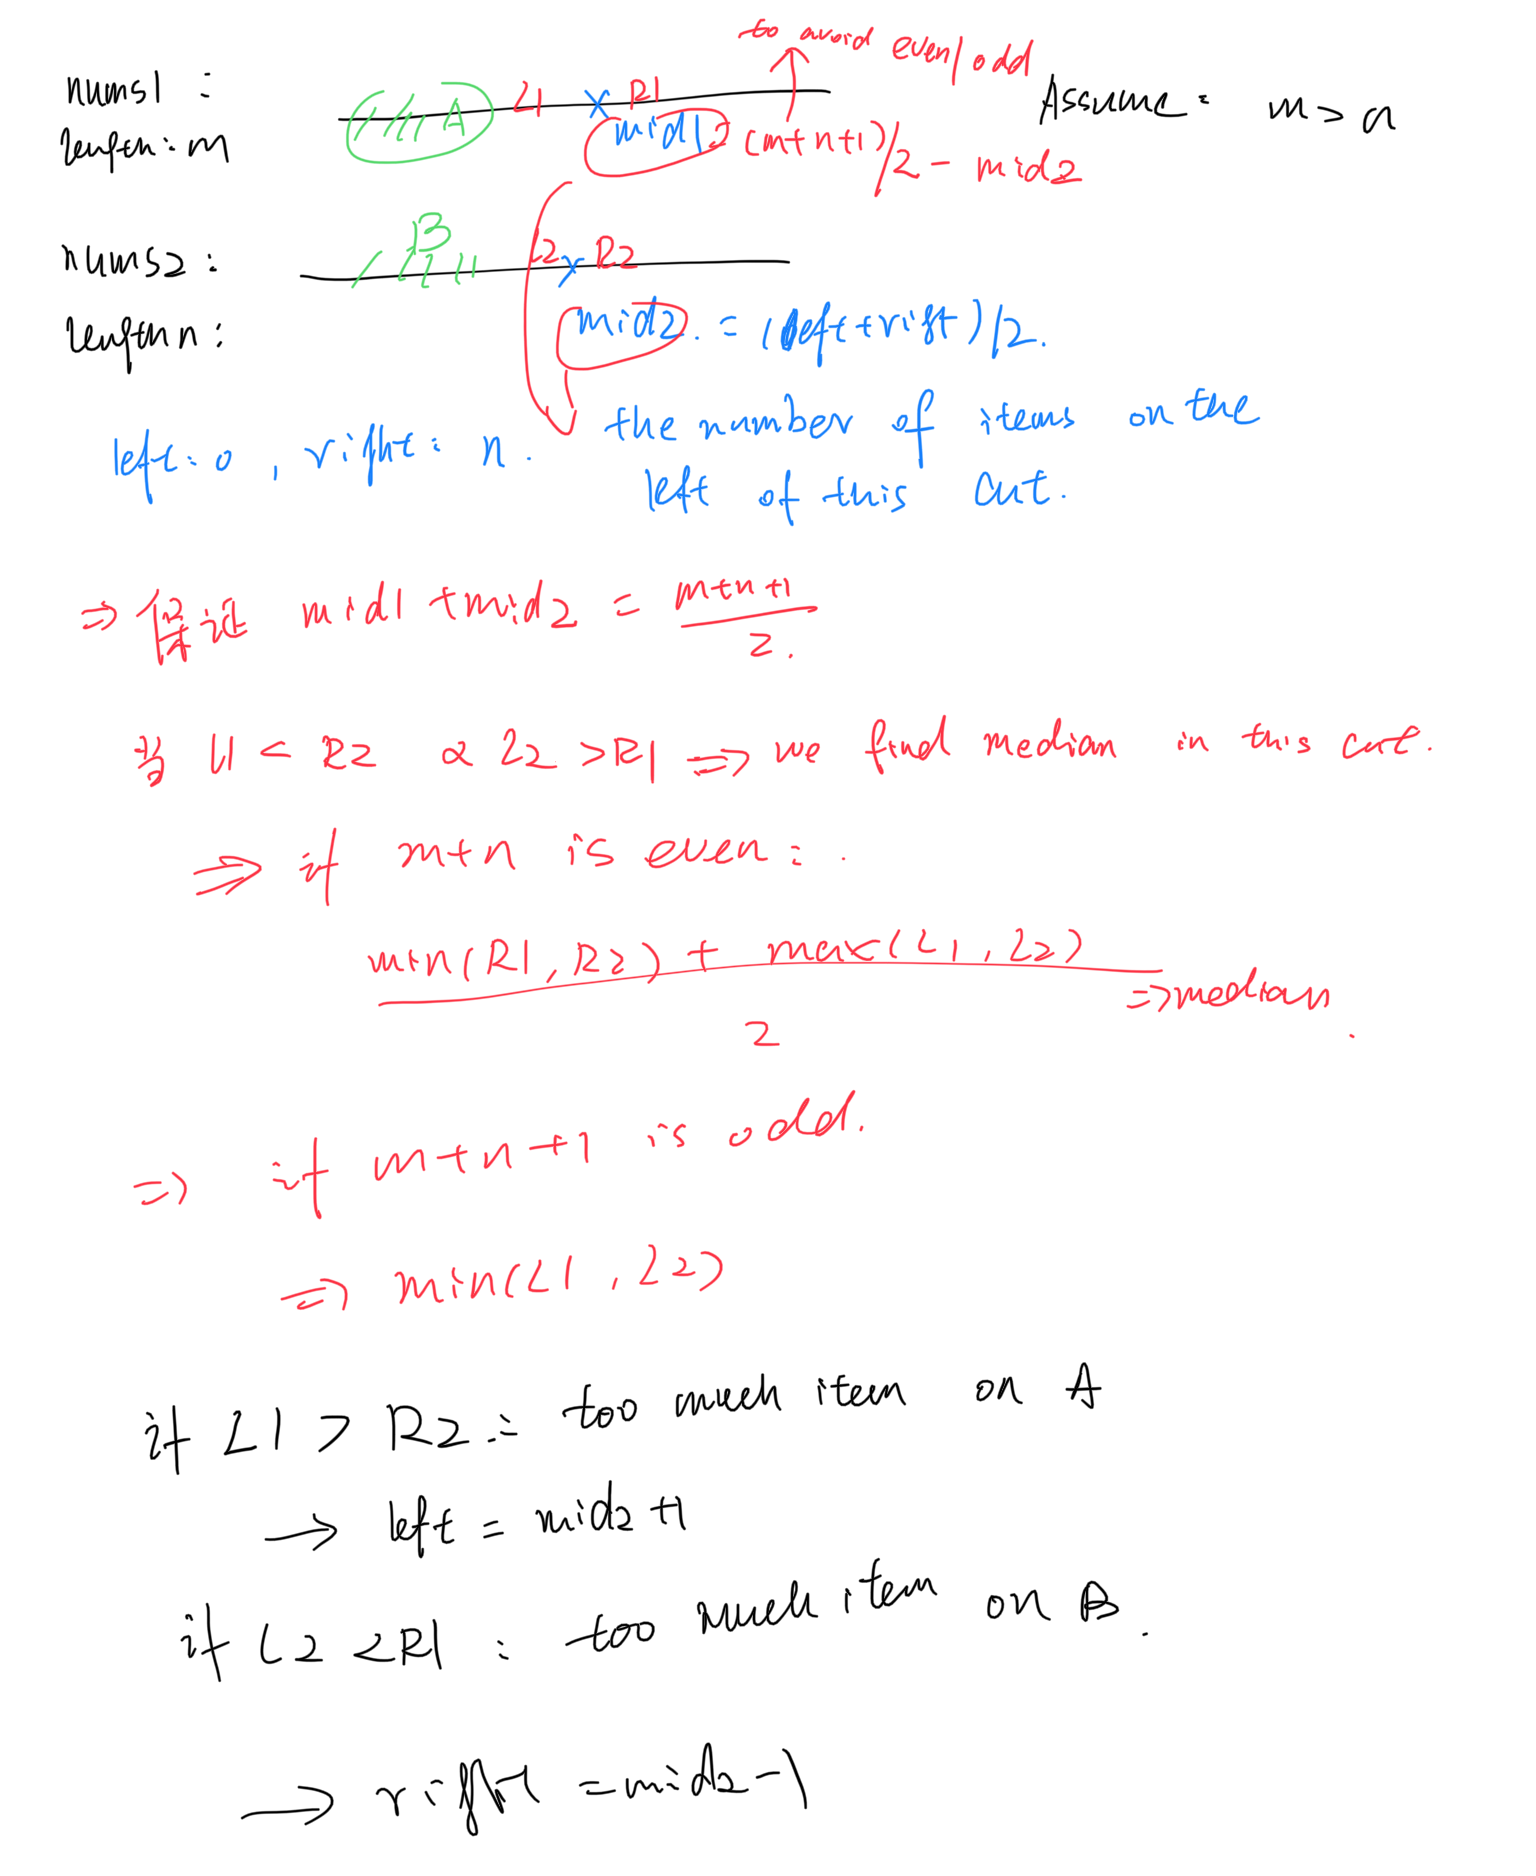 to avoid even/odd
nums1 :
A L1 x R1
Assume: m > n
length: m
mid1 = (m+n+1)/2 - mid2
B
nums2 :
L2 x R2
length n :
mid2. = (left+right)/2.
left: 0 , right: n.
the number of items on the
left of this cut.
=> 保证 mid1 + mid2 = m+n+1
2.
当 L1 < R2 & L2 > R1 => we find median in this cut.
=> if m+n is even : .
min(R1, R2) + max(L1, L2)
=> median.
2
=> if m+n+1 is odd.
=> min(L1, L2)
if L1 > R2 : too much item on A
→ left = mid2 +1
if L2 < R1 : too much item on B.
→ right = mid2 -1